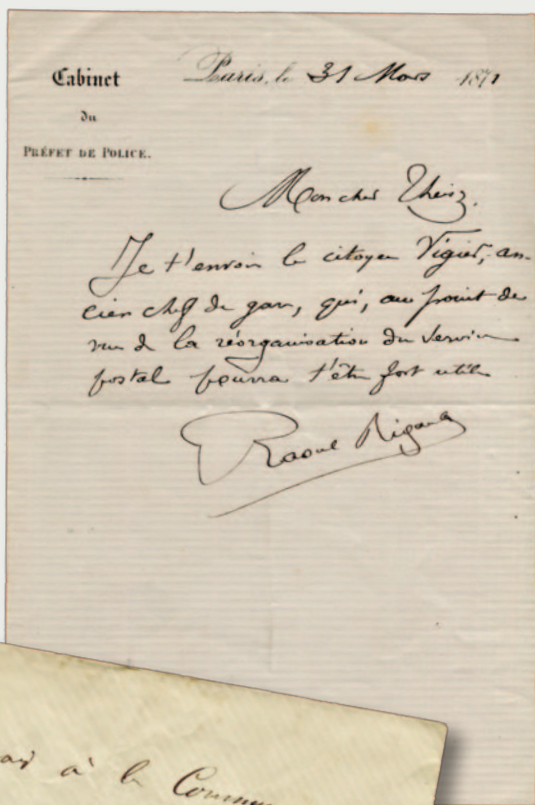 Cabinet
du
PRÉFET DE POLICE.
Paris, le 31 Mars 1871
Mon cher Theisz,
Je t'envoie le citoyen Vigier, an-
cien chef de gare, qui, au point de
vue de la réorganisation du service
postal pourra t'être fort utile
Raoul Rigault
à la Commun